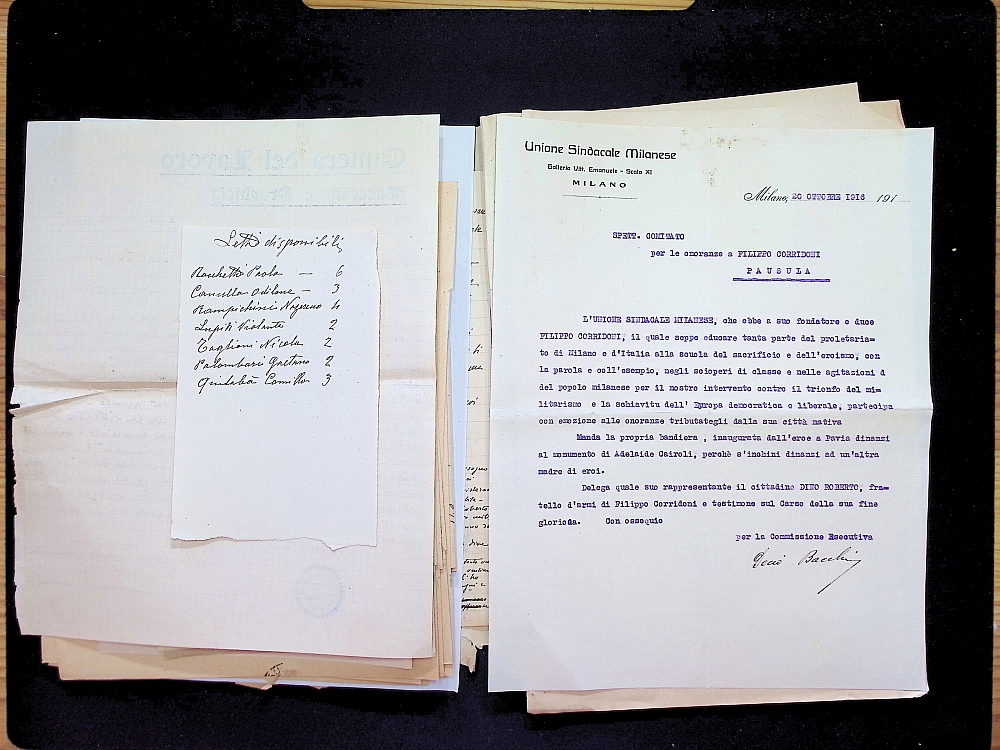 Camera del Lavoro
Letti disponibili
Bacchetti Paolo — 6
Camillo Odilone — 3
Rampichini Nazareno 4
Lupiti Violante 2
Taglioni Nicola 2
Palombari Gaetano 2
Quintabà Camillo 3
Unione Sindacale Milanese
Galleria Vitt. Emanuele - Scala XI
MILANO
Milano, 20 OTTOBRE 1916 191
SPETT. COMITATO
per le onoranze a FILIPPO CORRIDONI
PAUSULA
L'UNIONE SINDACALE MILANESE, che ebbe a suo fondatore e duce
FILIPPO CORRIDONI, il quale seppe educare tanta parte del proletaria=
to di Milano e d'Italia alla scuola del sacrificio e dell'eroismo, con
la parola e coll'esempio, negli scioperi di classe e nelle agitazioni d
del popolo milanese per il nostro intervento contro il trionfo del mi=
litarismo e la schiavitu dell' Europa democratica e liberale, partecipa
con emozione alle onoranze tributategli dalla sua città nativa
Manda la propria bandiera , inaugurata dall'eroe a Pavia dinanzi
al monumento di Adelaide Cairoli, perchè s'inchini dinanzi ad un'altra
madre di eroi.
Delega quale suo rappresentante il cittadino DINO ROBERTO, fra=
tello d'armi di Filippo Corridoni e testimone sul Carso della sua fine
gloriosa. Con ossequio
per la Commissione Esecutiva
Decio Bacchi